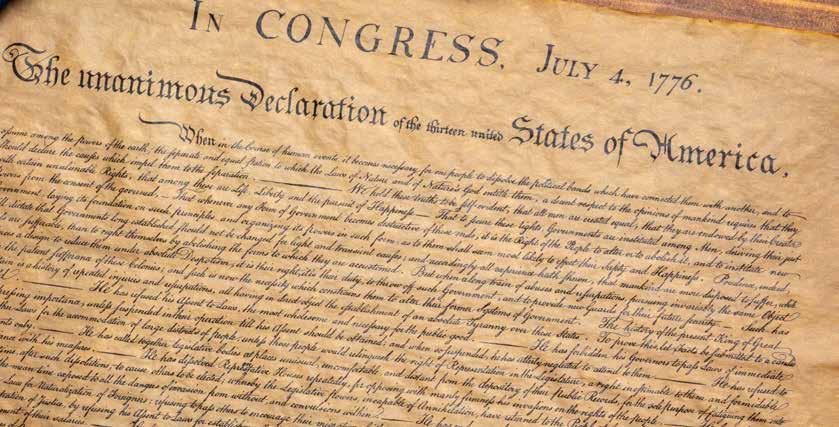 In CONGRESS, July 4, 1776.
The unanimous Declaration of the thirteen united States of America,
When in the Course of human events, it becomes necessary for one people to dissolve the political bands which have connected them with another, and to
assume among the powers of the earth, the separate and equal station to which the Laws of Nature and of Nature's God entitle them, a decent respect to the opinions of mankind requires that they
should declare the causes which impel them to the separation. — We hold these truths to be self-evident, that all men are created equal, that they are endowed by their Creator
with certain unalienable Rights, that among these are Life, Liberty and the pursuit of Happiness. — That to secure these rights, Governments are instituted among Men, deriving their just
powers from the consent of the governed, — That whenever any Form of Government becomes destructive of these ends, it is the Right of the People to alter or to abolish it, and to institute new
vernment, laying its foundation on such principles and organizing its powers in such form, as to them shall seem most likely to effect their Safety and Happiness. Prudence, indeed,
ill dictate that Governments long established should not be changed for light and transient causes; and accordingly all experience hath shewn, that mankind are more disposed to suffer, while
are sufferable, than to right themselves by abolishing the forms to which they are accustomed. But when a long train of abuses and usurpations, pursuing invariably the same Object
a design to reduce them under absolute Despotism, it is their right, it is their duty, to throw off such Government, and to provide new Guards for their future security. — Such has
the patient sufferance of these Colonies; and such is now the necessity which constrains them to alter their former Systems of Government. The history of the present King of Great
is a history of repeated injuries and usurpations, all having in direct object the establishment of an absolute Tyranny over these States. To prove this, let Facts be submitted to a candid
He has refused his Assent to Laws, the most wholesome and necessary for the public good. — He has forbidden his Governors to pass Laws of immediate
pressing importance, unless suspended in their operation till his Assent should be obtained; and when so suspended, he has utterly neglected to attend to them. — He has refused to
Laws for the accommodation of large districts of people, unless those people would relinquish the right of Representation in the Legislature, a right inestimable to them and formidable
only. — He has called together legislative bodies at places unusual, uncomfortable, and distant from the depository of their Public Records, for the sole purpose of fatiguing them into
with his measures. — He has dissolved Representative Houses repeatedly, for opposing with manly firmness his invasions on the rights of the people.
time, after such dissolutions, to cause others to be elected; whereby the Legislative powers, incapable of Annihilation, have returned to the
mean time exposed to all the dangers of invasion from without, and convulsions within. — He has
Laws for Naturalization of Foreigners; refusing to pass others to encourage their
of Justice, by refusing his Assent to Laws for